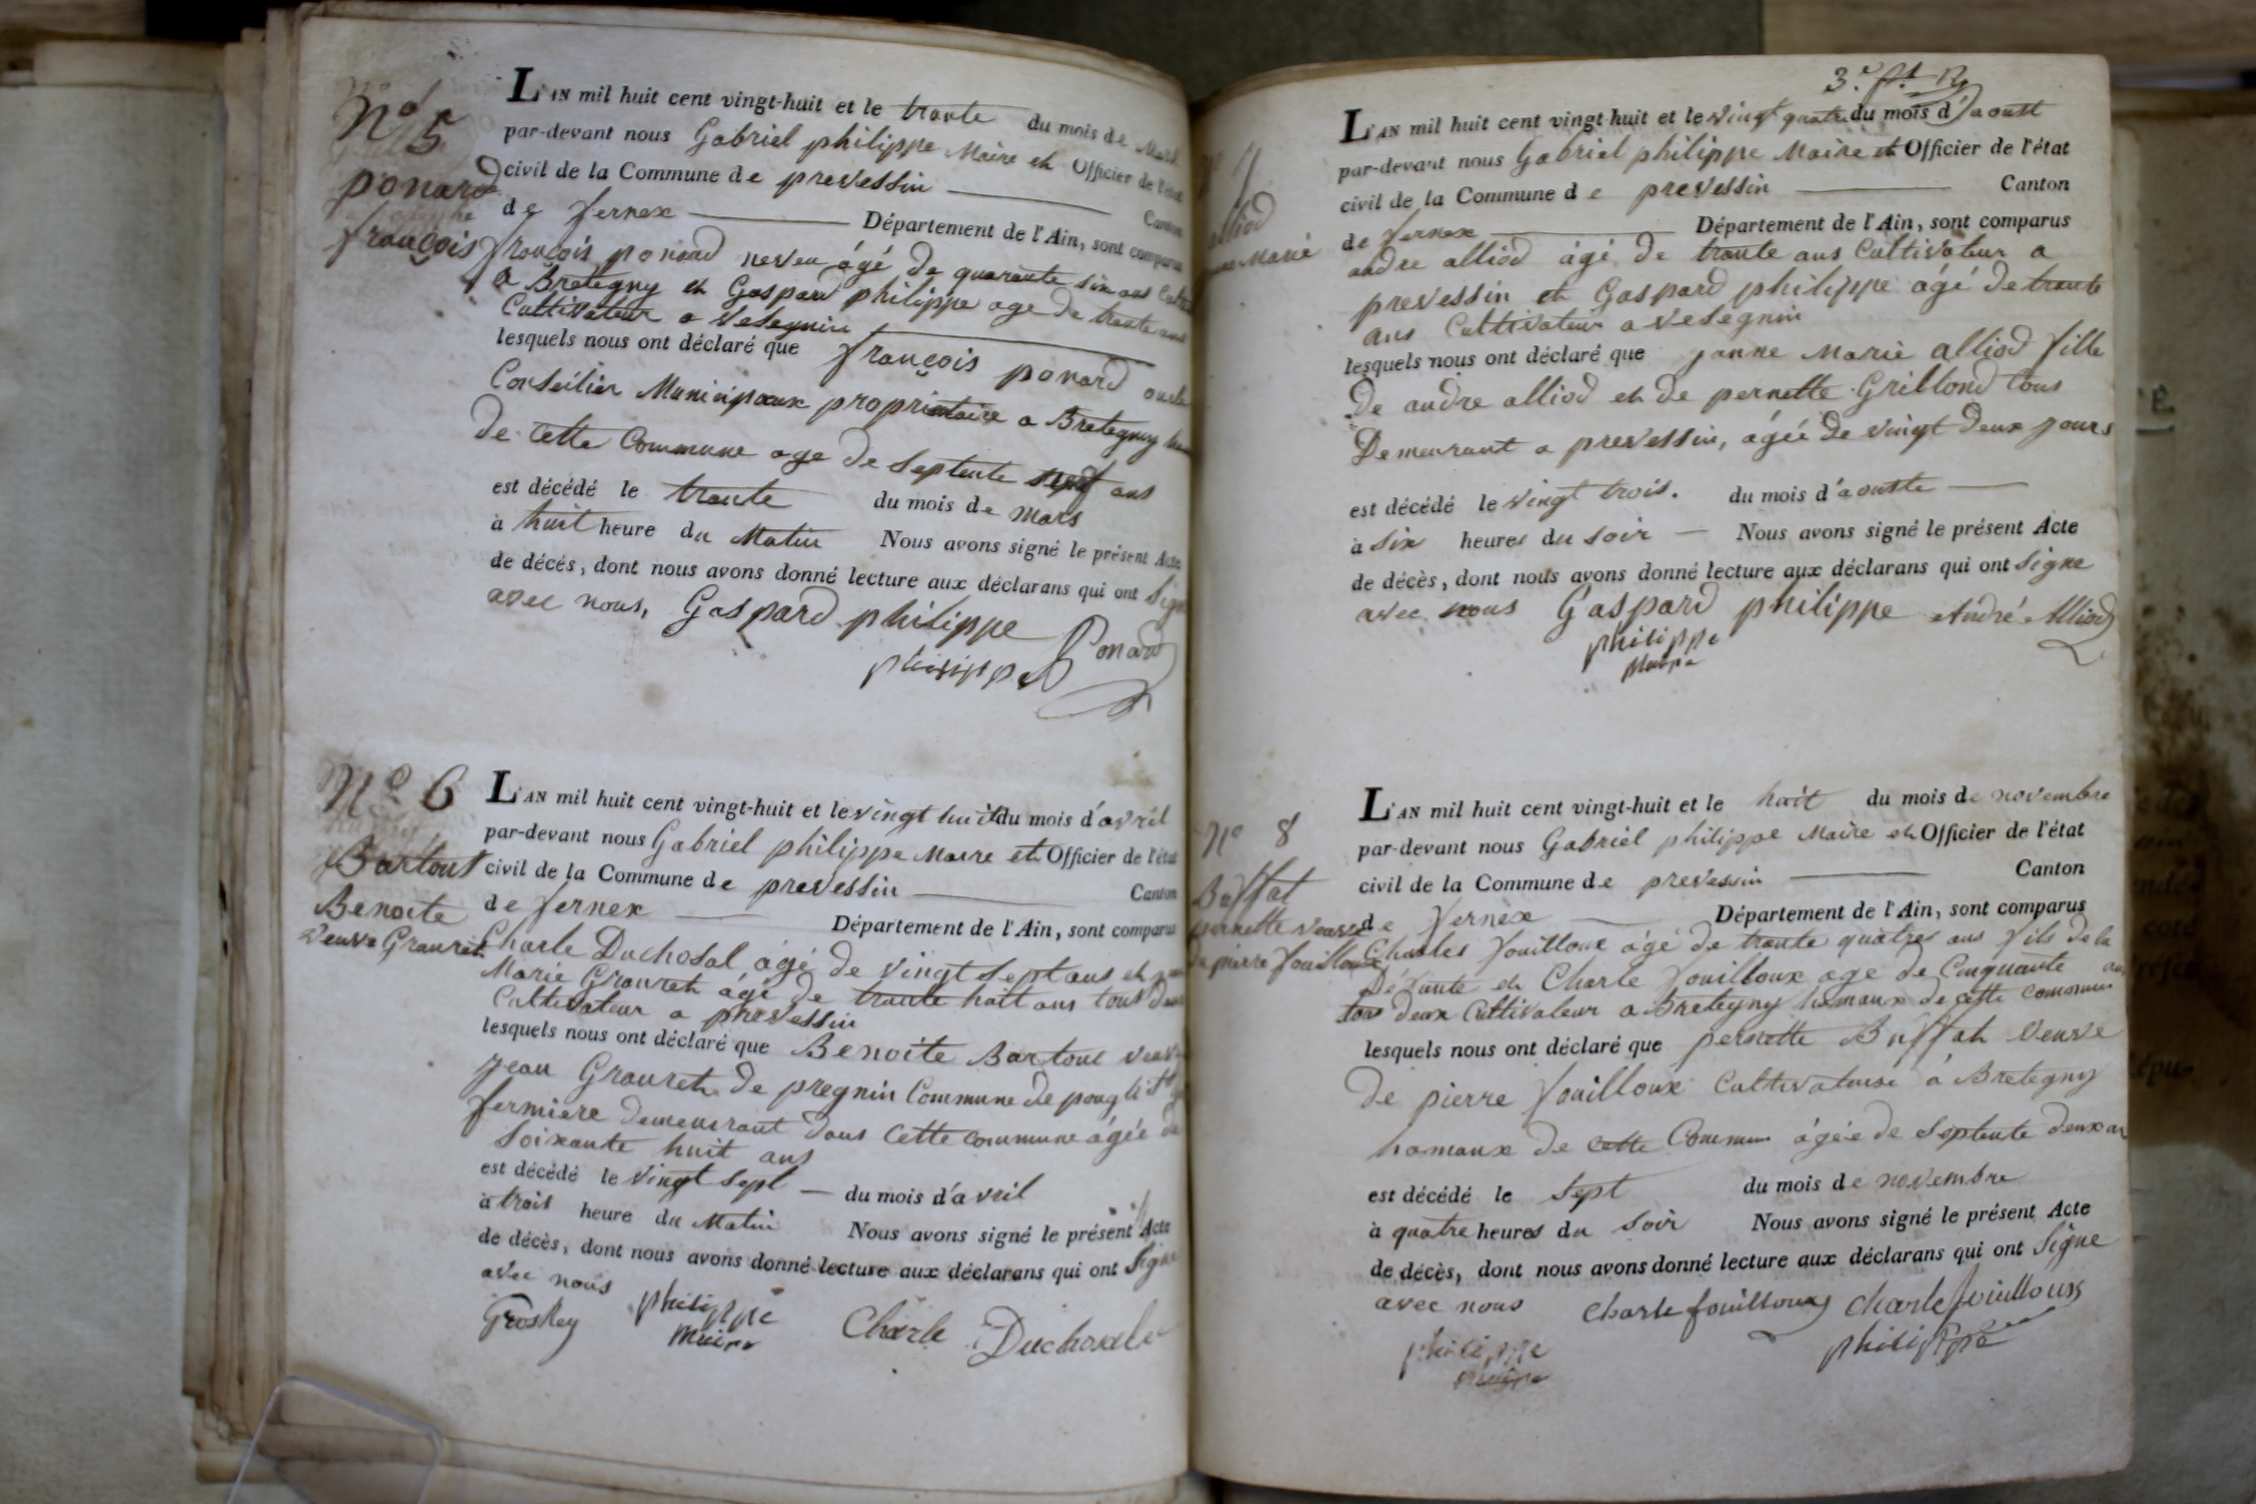 N° 5
ponard
françois
L'AN mil huit cent vingt-huit et le trante du mois de Mars
par-devant nous Gabriel philippe Maire et Officier de l'état
civil de la Commune de prevessin Canton
de fernex Département de l'Ain, sont comparus
françois ponard neveu âgé de quarante six ans
a Bretegny et Gaspard philippe age de trante ans
Cultivateur a Vesegnin
lesquels nous ont déclaré que françois ponard
Conseilier Municipaux proprietaire a Bretegny
de cette Commune age de septente ans
est décédé le trante du mois de Mars
à huit heure du Matin Nous avons signé le présent Acte
de décès, dont nous avons donné lecture aux déclarans qui ont Signe
avec nous, Gaspard philippe Ponard
philippe
N° 6
Bartout
Benoite
Veuve Grauret
L'AN mil huit cent vingt-huit et le vingt huit du mois d'avril
par-devant nous Gabriel philippe Maire et Officier de l'état
civil de la Commune de prevessin Canton
de fernex Département de l'Ain, sont comparus
Charle Duchosal âgé de vingt sept ans et
Marie Grauret âgé de trante huit ans tous deux
Cultivateur a prevessin
lesquels nous ont déclaré que Benoite Bartout veuve
jean Grauret de pregnin Commune de
fermiere demeurant dans cette commune âgée de
soixante huit ans
est décédé le vingt sept du mois d'avril
à trois heure du Matin Nous avons signé le présent Acte
de décès, dont nous avons donné lecture aux déclarans qui ont Signe
avec nous
philippe Charle Duchosal
maire
alliod
Marie
L'AN mil huit cent vingt-huit et le vingt quatre du mois d'aoust
par-devant nous Gabriel philippe Maire et Officier de l'état
civil de la Commune de prevessin Canton
de fernex Département de l'Ain, sont comparus
andre alliod âgé de trante ans Cultivateur a
prevessin et Gaspard philippe âgé de trante
ans Cultivateur a vesegnin
lesquels nous ont déclaré que janne Marie alliod fille
De andre alliod et de pernette Grillond tous
Demeurant a prevessin, âgée de vingt deux jours
est décédé le vingt trois. du mois d'aouste
à six heures du soir Nous avons signé le présent Acte
de décès, dont nous avons donné lecture aux déclarans qui ont signe
avec nous Gaspard philippe André Alliod
philippe
Maire
N° 8
Buffat
pernette veuve
de pierre fouilloux
L'AN mil huit cent vingt-huit et le huit du mois de novembre
par-devant nous Gabriel philippe Maire et Officier de l'état
civil de la Commune de prevessin Canton
de fernex Département de l'Ain, sont comparus
Charles fouilloux âgé de trante quatres ans fils de la
Défunte et Charle fouilloux age de Cinquante
tous deux Cultivateur a Bretegny hamaux de cette commune
lesquels nous ont déclaré que pernette Buffat veuve
de pierre fouilloux Cultivateuse à Bretegny
hamaux de cette Commun âgée de septente deux an
est décédé le sept du mois de novembre
à quatre heures du soir Nous avons signé le présent Acte
de décès, dont nous avons donné lecture aux déclarans qui ont Signe
avec nous Charle fouilloux charle fouilloux
philippe philippe